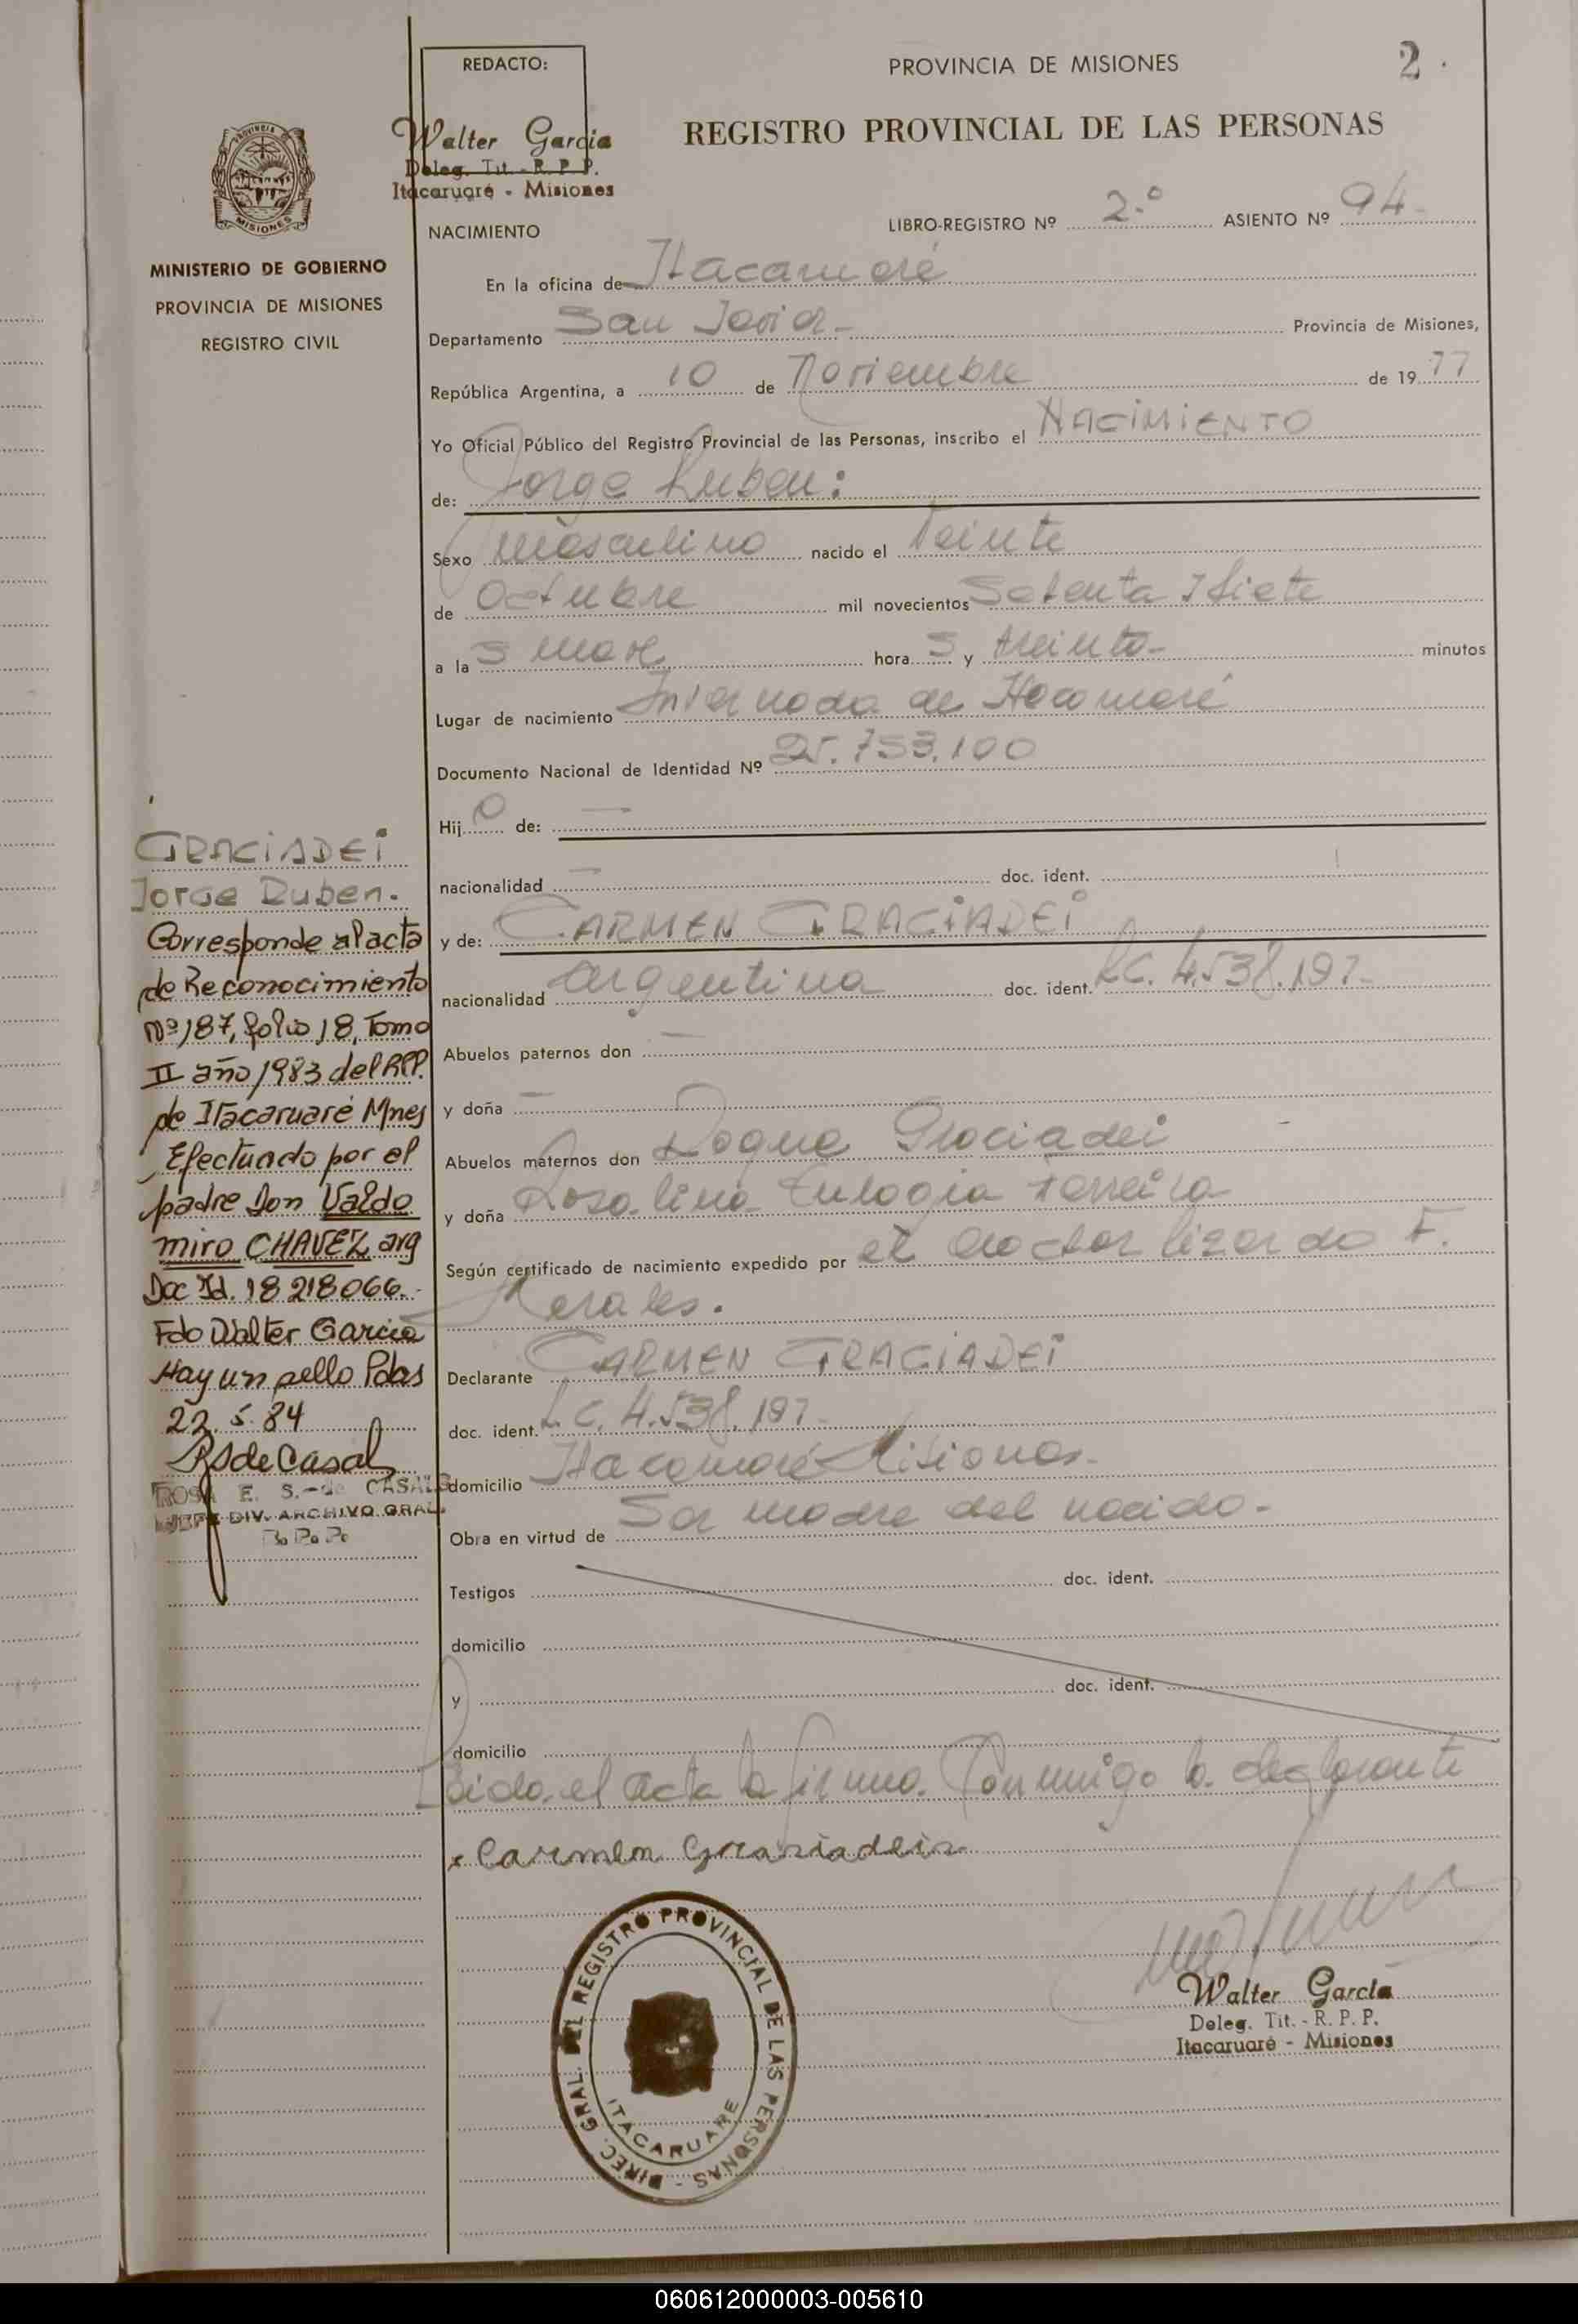 REDACTO:
PROVINCIA DE MISIONES
2.
Walter Garcia
Deleg. Tit. - R. P. P.
Itacaruaré - Misiones
REGISTRO PROVINCIAL DE LAS PERSONAS
PROVINCIA
MISIONES
NACIMIENTO
LIBRO-REGISTRO Nº 2.º ASIENTO Nº 94
MINISTERIO DE GOBIERNO
PROVINCIA DE MISIONES
REGISTRO CIVIL
En la oficina de Itacaruaré
Departamento San Javier - Provincia de Misiones,
República Argentina, a 10 de Noviembre de 1977
Yo Oficial Público del Registro Provincial de las Personas, inscribo el NACIMIENTO
de: Jorge Ruben:
Sexo Masculino nacido el Veinte
de Octubre mil novecientos Setenta Y Siete
a la hora s y treinta - minutos
Lugar de nacimiento de Itacaruaré
Documento Nacional de Identidad Nº 25.753.100
Hijo de: —
nacionalidad — doc. ident.
y de: CARMEN GRACIADEI
nacionalidad argentina doc. ident. L.C. 4.538.197-
Abuelos paternos don —
y doña —
Abuelos maternos don Roque Graciadei
y doña Rosalina Eulogia Ferreira
Según certificado de nacimiento expedido por el doctor Lizardo F.
Declarante CARMEN GRACIADEI
doc. ident. L.C. 4.538.197-
domicilio Itacaruaré Misiones-
Obra en virtud de Ser madre del nacido-
Testigos doc. ident.
domicilio
y doc. ident.
domicilio
Leida el acta la firma Conmigo la declarante
x Carmen Grasiadeis
GRACIADEI
Jorge Ruben.
Corresponde al acta
de Reconocimiento
Nº 187, folio 18, Tomo
II año 1983 del RPP.
de Itacaruaré Mnes
Efectuado por el
padre Don Valdo
miro CHAVEZ arg
Doc Id. 18 218066.-
Fdo Walter Garcia
Hay un sello Pdas
22. 5. 84
RS de Casals
ROSA E. S.- de CASALS
JEFE DIV. ARCHIVO GRAL
R. P. P.
DIREC. GRAL. DEL REGISTRO PROVINCIAL DE LAS PERSONAS -
ITACARUARE
Walter Garcia
Deleg. Tit. - R. P. P.
Itacaruaré - Misiones
060612000003-005610